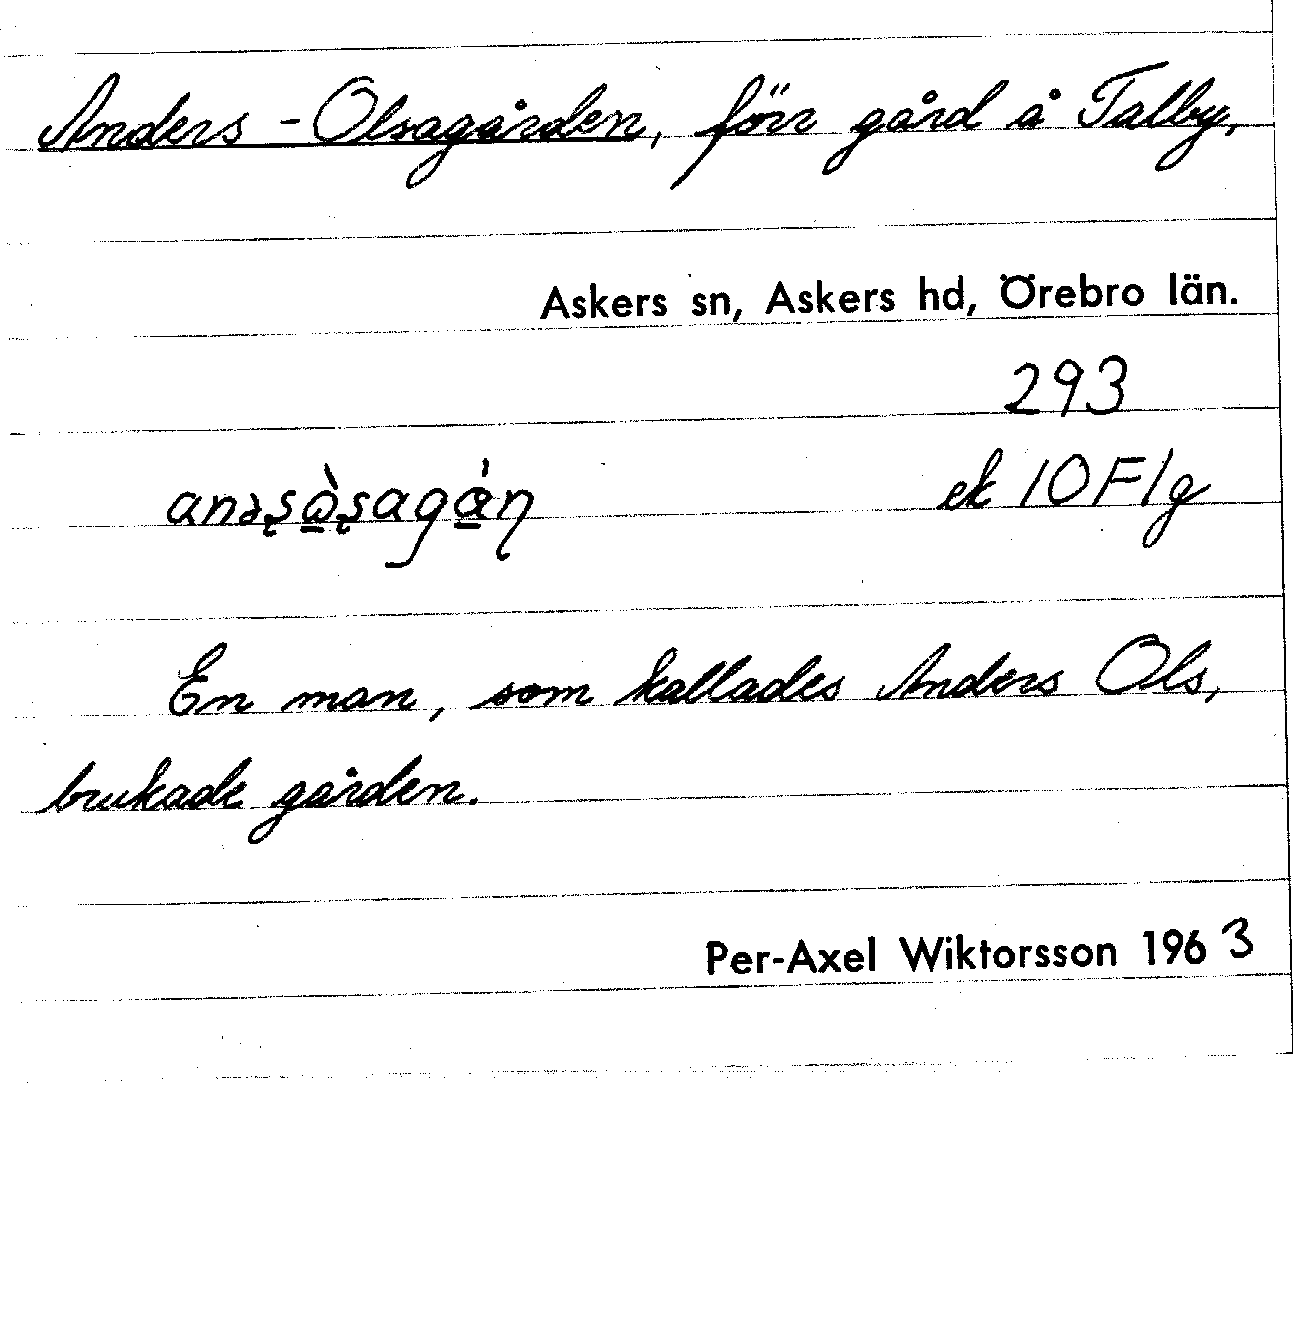 Anders-Olsagården, förr gård å Talby,
Askers sn, Askers hd, Örebro län.
293
anəʂὰʂagάɳ ek 10F1g
En man, som kallades Anders Ols,
brukade gården.
Per-Axel Wiktorsson 1963